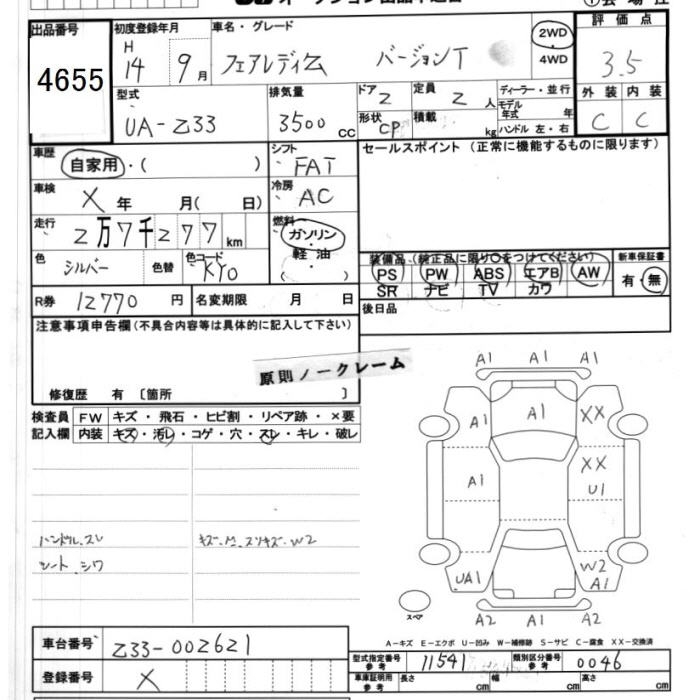 出品番号
4655
初度登録年月
H
14 9月
車名・グレード
フェアレディZ バージョンT
2WD
4WD
評価点
3.5
外装 内装
C C
型式
UA-Z33
排気量
3500 cc
ドア
2
定員
2 人
形状
CP
積載
kg
ディーラー・並行
モデル年式 年
ハンドル 左・右
車歴
自家用・( )
シフト
FAT
車検
X 年 月( 日)
冷房
AC
走行
2万7千277km
燃料
ガソリン
軽油
色
シルバー
色替
色コード
KY0
R券 12770 円
名変期限 月 日
セールスポイント (正常に機能するものに限ります)
装備品 (純正品に限り○をつけてください)
PS PW ABS エアB AW
SR ナビ TV カワ
新車保証書
有・無
後日品
注意事項申告欄(不具合内容等は具体的に記入して下さい)
原則ノークレーム
修復歴 有 〔箇所 〕
検査員記入欄
FW キズ・飛石・ヒビ割・リペア跡・×要
内装 キズ・汚レ・コゲ・穴・スレ・キレ・破レ
ハンドル スレ
シート シワ
A1 A1 A1
A1 A1 XX
A1 XX
U1
UA1 W2
A1
A2 A1 A2
スペア
A-キズ E-エクボ U-凹み W-補修跡 S-サビ C-腐食 XX-交換済
車台番号 Z33-002621
登録番号 X
型式指定番号 参考 11541
類別区分番号 参考 0046
車庫証明用 参考
長さ cm 幅 cm 高さ cm